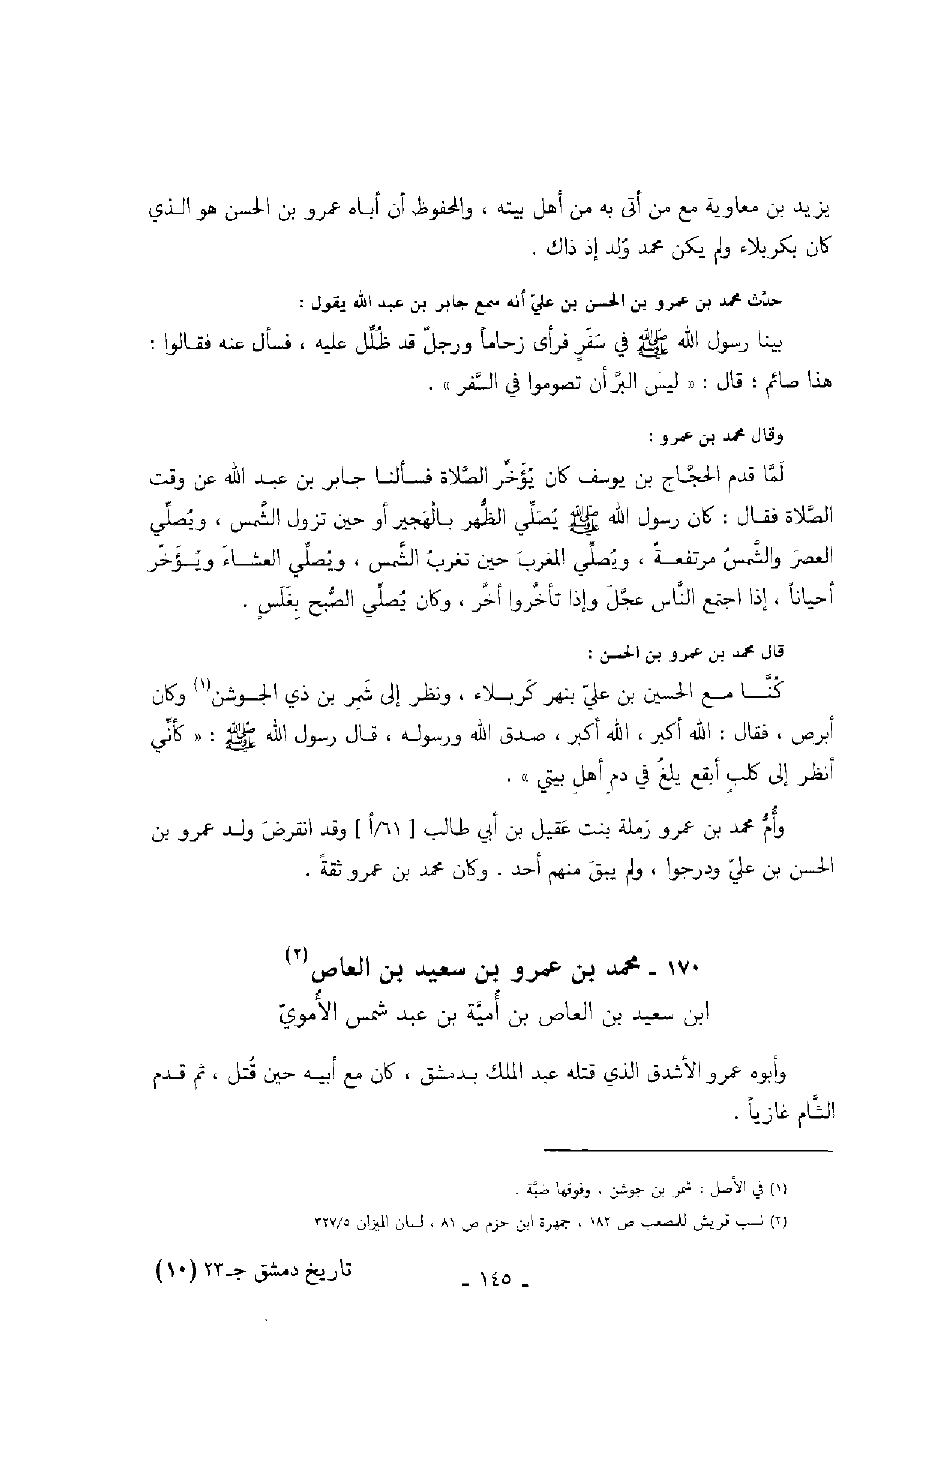 يزيد بن معاوية مع من أتى به من أهل بيته ، والمحفوظ أن أباه عمرو بن الحسن هو الذي
كان بكربلاء ولم يكن محمد وُلد إذ ذاك .
حدَّث محمد بن عمرو بن الحسن بن عليّ أنه سمع جابر بن عبد الله يقول :
بينا رسول الله ﷺ في سَفَرٍ فرأى زحاماً ورجلٌ قد ظُلِّل عليه ، فسأل عنه فقالوا :
هذا صائم ؛ قال : « ليسَ البرُّ أن تصوموا في السَّفر » .
وقال محمد بن عمرو :
لَمَّا قدم الحجَّاج بن يوسف كان يُؤَخِّر الصَّلاة فسألنا جابر بن عبد الله عن وقت
الصَّلاة فقال : كان رسول الله ﷺ يُصَلِّي الظُّهر بالهجير أو حين تزول الشَّمس ، ويُصلِّي
العصرَ والشَّمسُ مرتفعةٌ ، ويُصلِّي المغربَ حين تغربُ الشَّمس ، ويُصلِّي العشاءَ ويُؤَخّر
أحياناً ، إذا اجتمع النَّاس عجَّلَ وإذا تأخَّروا أخَّر ، وكان يُصلِّي الصُّبح بِغَلَسٍ .
قال محمد بن عمرو بن الحسن :
كُنَّا مع الحسين بن عليّ بنهر كَربلاء ، ونظر إلى شَمِر بن ذي الجوشن(١) وكان
أبرص ، فقال : الله أكبر ، الله أكبر ، صدق الله ورسوله ، قال رسول الله ﷺ : « كأنِّي
أنظر إلى كلبٍ أبقع يلغُ في دمِ أهلِ بيتي » .
وأُمُّ محمد بن عمرو رَملة بنت عَقيل بن أبي طالب [ ٦١/أ ] وقد انقرضَ ولد عمرو بن
الحسن بن عليّ ودرجوا ، ولم يبقَ منهم أحد . وكان محمد بن عمرو ثقةً .
١٧٠ - محمد بن عمرو بن سعيد بن العاص(٢)
ابن سعيد بن العاص بن أُميَّة بن عبد شمس الأُمويّ
وأبوه عمرو الأشدق الذي قتله عبد الملك بدمشق ، كان مع أبيه حين قُتل ، ثم قدم
الشَّام غازياً .
(١) في الأصل : شمر بن جوشن ، وفوقها ضبَّة .
(٢) نسب قريش للمصعب ص ١٨٢ ، جمهرة ابن حزم ص ٨١ ، لسان الميزان ٣٢٧/٥
- ١٤٥ -
تاريخ دمشق جـ٢٣ (١٠)